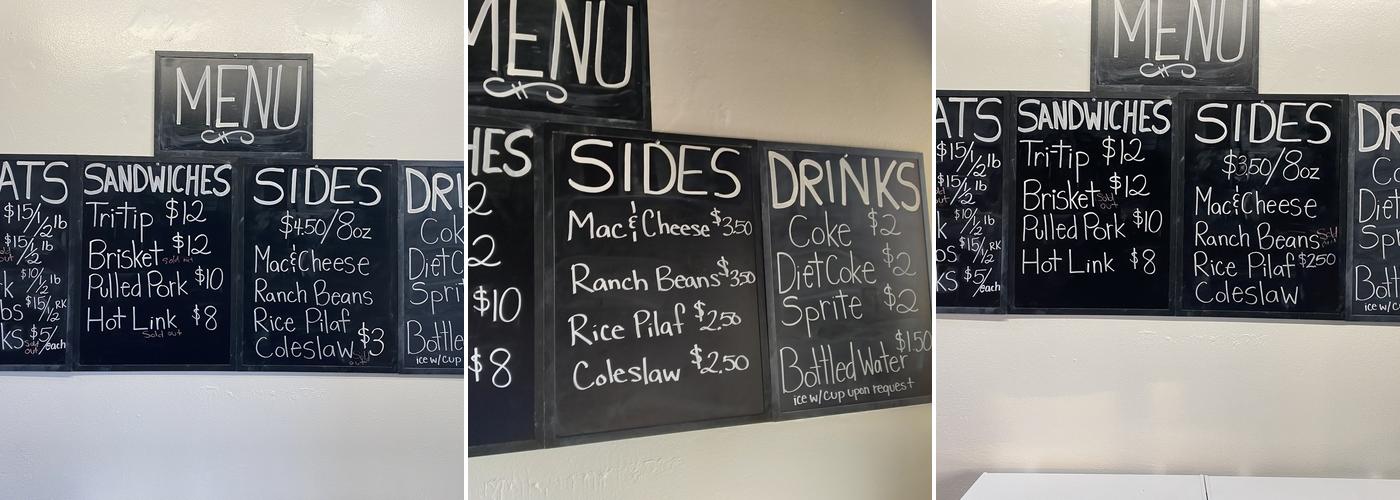 MENU
ATS
$15/½ lb
$15/½ lb
k $10/½ lb
bs $15/½ RK
ks $5/each
sold out
SANDWICHES
Tri-Tip $12
Brisket $12
sold out
Pulled Pork $10
Hot Link $8
Sold out
SIDES
$4.50/8oz
Mac & Cheese
Ranch Beans
Rice Pilaf
Coleslaw $3
Sold out
DRI
Cok
Diet C
Sprit
Bottle
ice w/cup
MENU
HES
2
2
$10
$8
SIDES
Mac & Cheese $3.50
Ranch Beans $3.50
Rice Pilaf $2.50
Coleslaw $2.50
DRINKS
Coke $2
Diet Coke $2
Sprite $2
$1.50
Bottled Water
ice w/cup upon request
MENU
ATS
$15/½ lb
$15/½ lb
$10/½ lb
bs $15/½ RK
ks $5/each
SANDWICHES
Tri-Tip $12
Brisket $12
Sold out
Pulled Pork $10
Hot Link $8
SIDES
$3.50/8oz
Mac & Cheese
Ranch Beans Sold out
Rice Pilaf $2.50
Coleslaw
DR
Co
Diet
Sp
Bott
ice w/